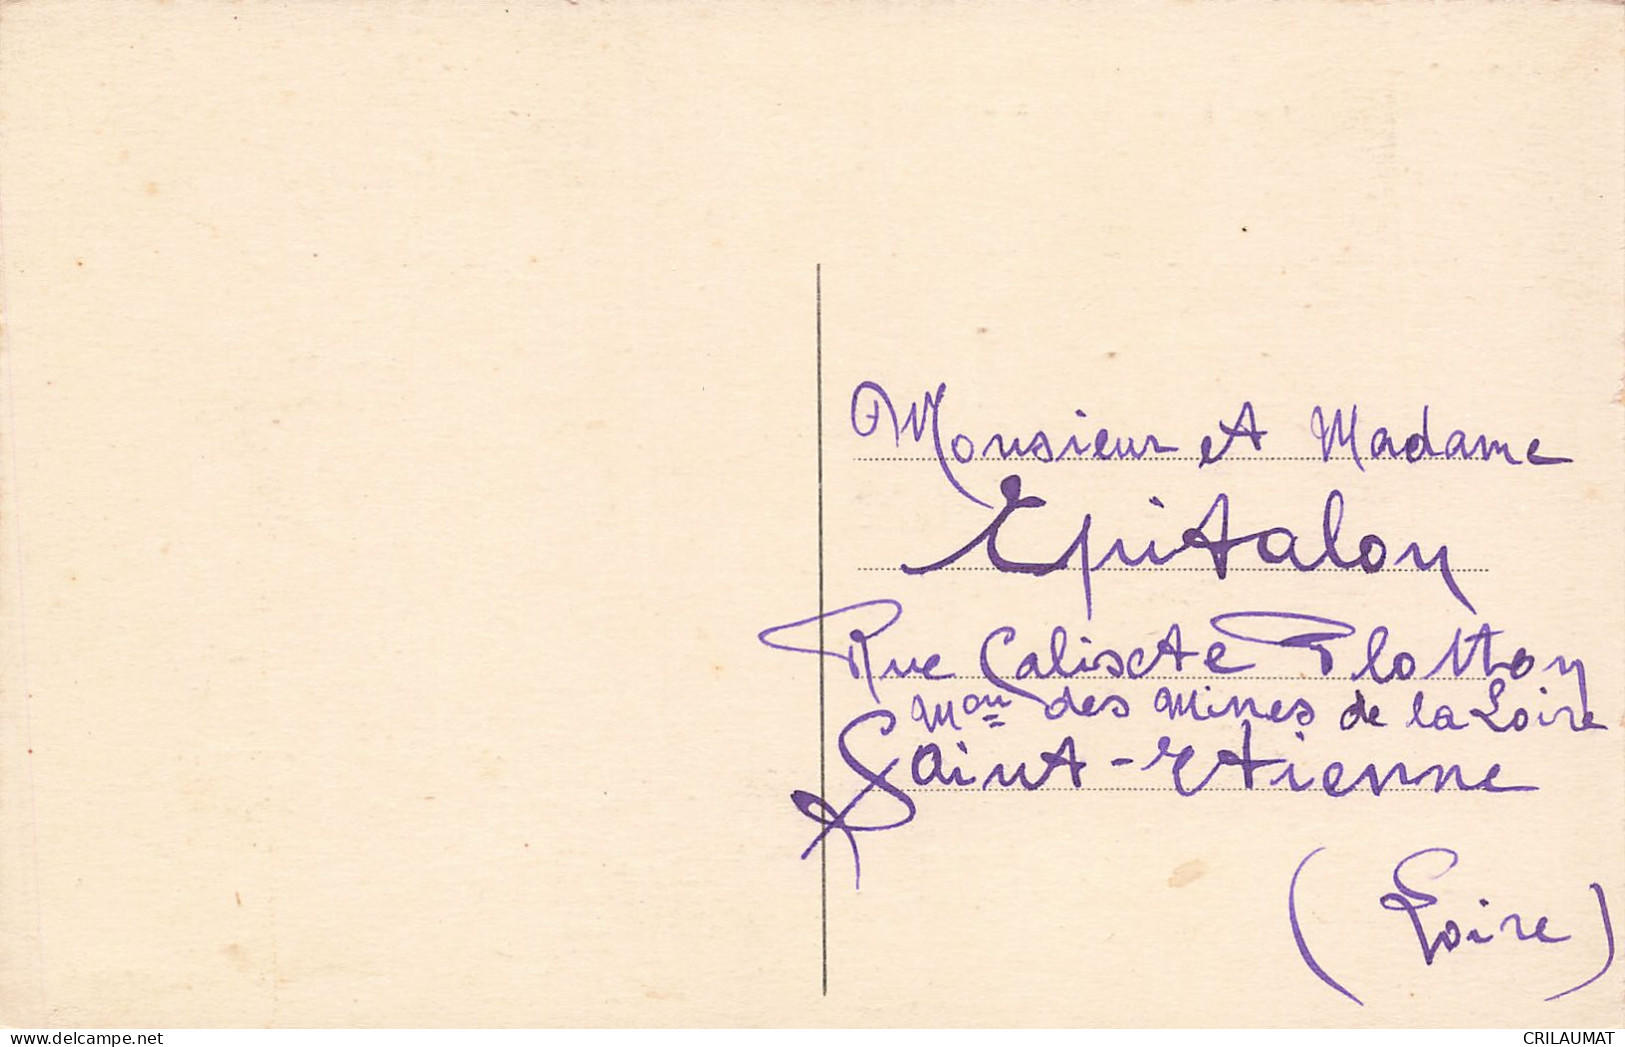 Monsieur et Madame
Epitalon
Rue Calixte Plotton
Mon des Mines de la Loire
Saint-Etienne
(Loire)
www.delcampe.net
CRILAUMAT